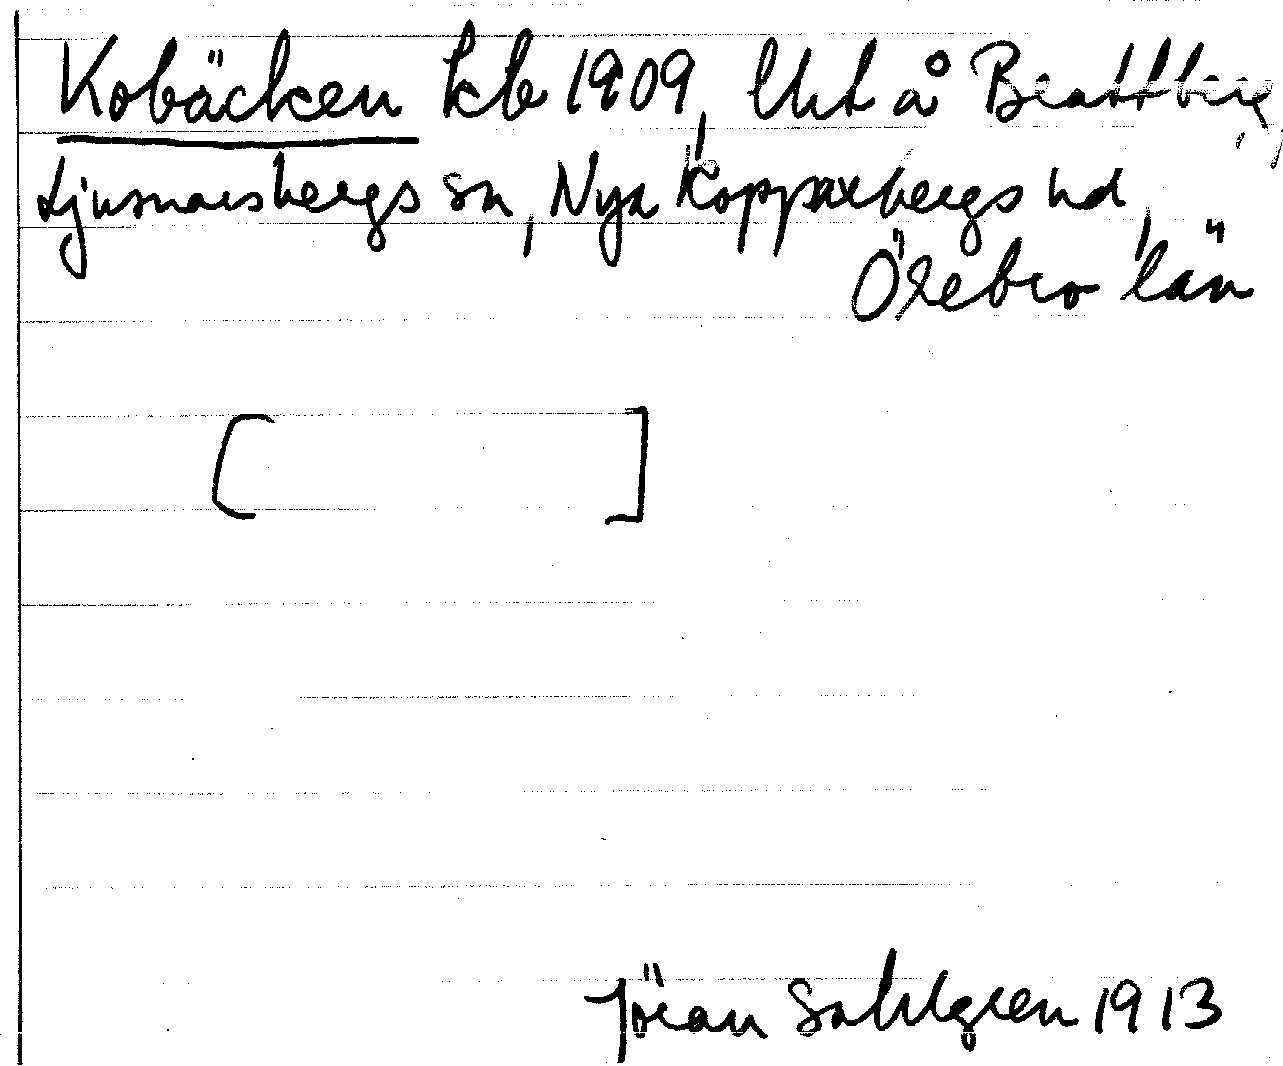 Kobäcken kb 1909, Uht å Brattberg,
Ljusnarsbergs sn, Nya Kopparbergs hd,
Örebro län
[ ]
Jöran Sahlgren 1913